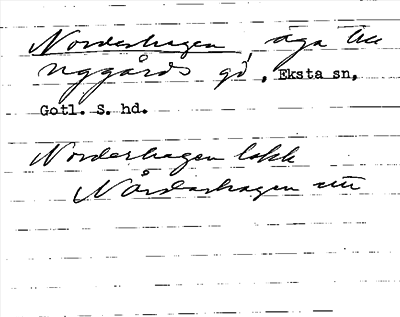 Norderhagen, äga till
Nygårds gd, Eksta sn,
Gotl. S. hd.
Norderhagen lokk
Nårdarhagen utt